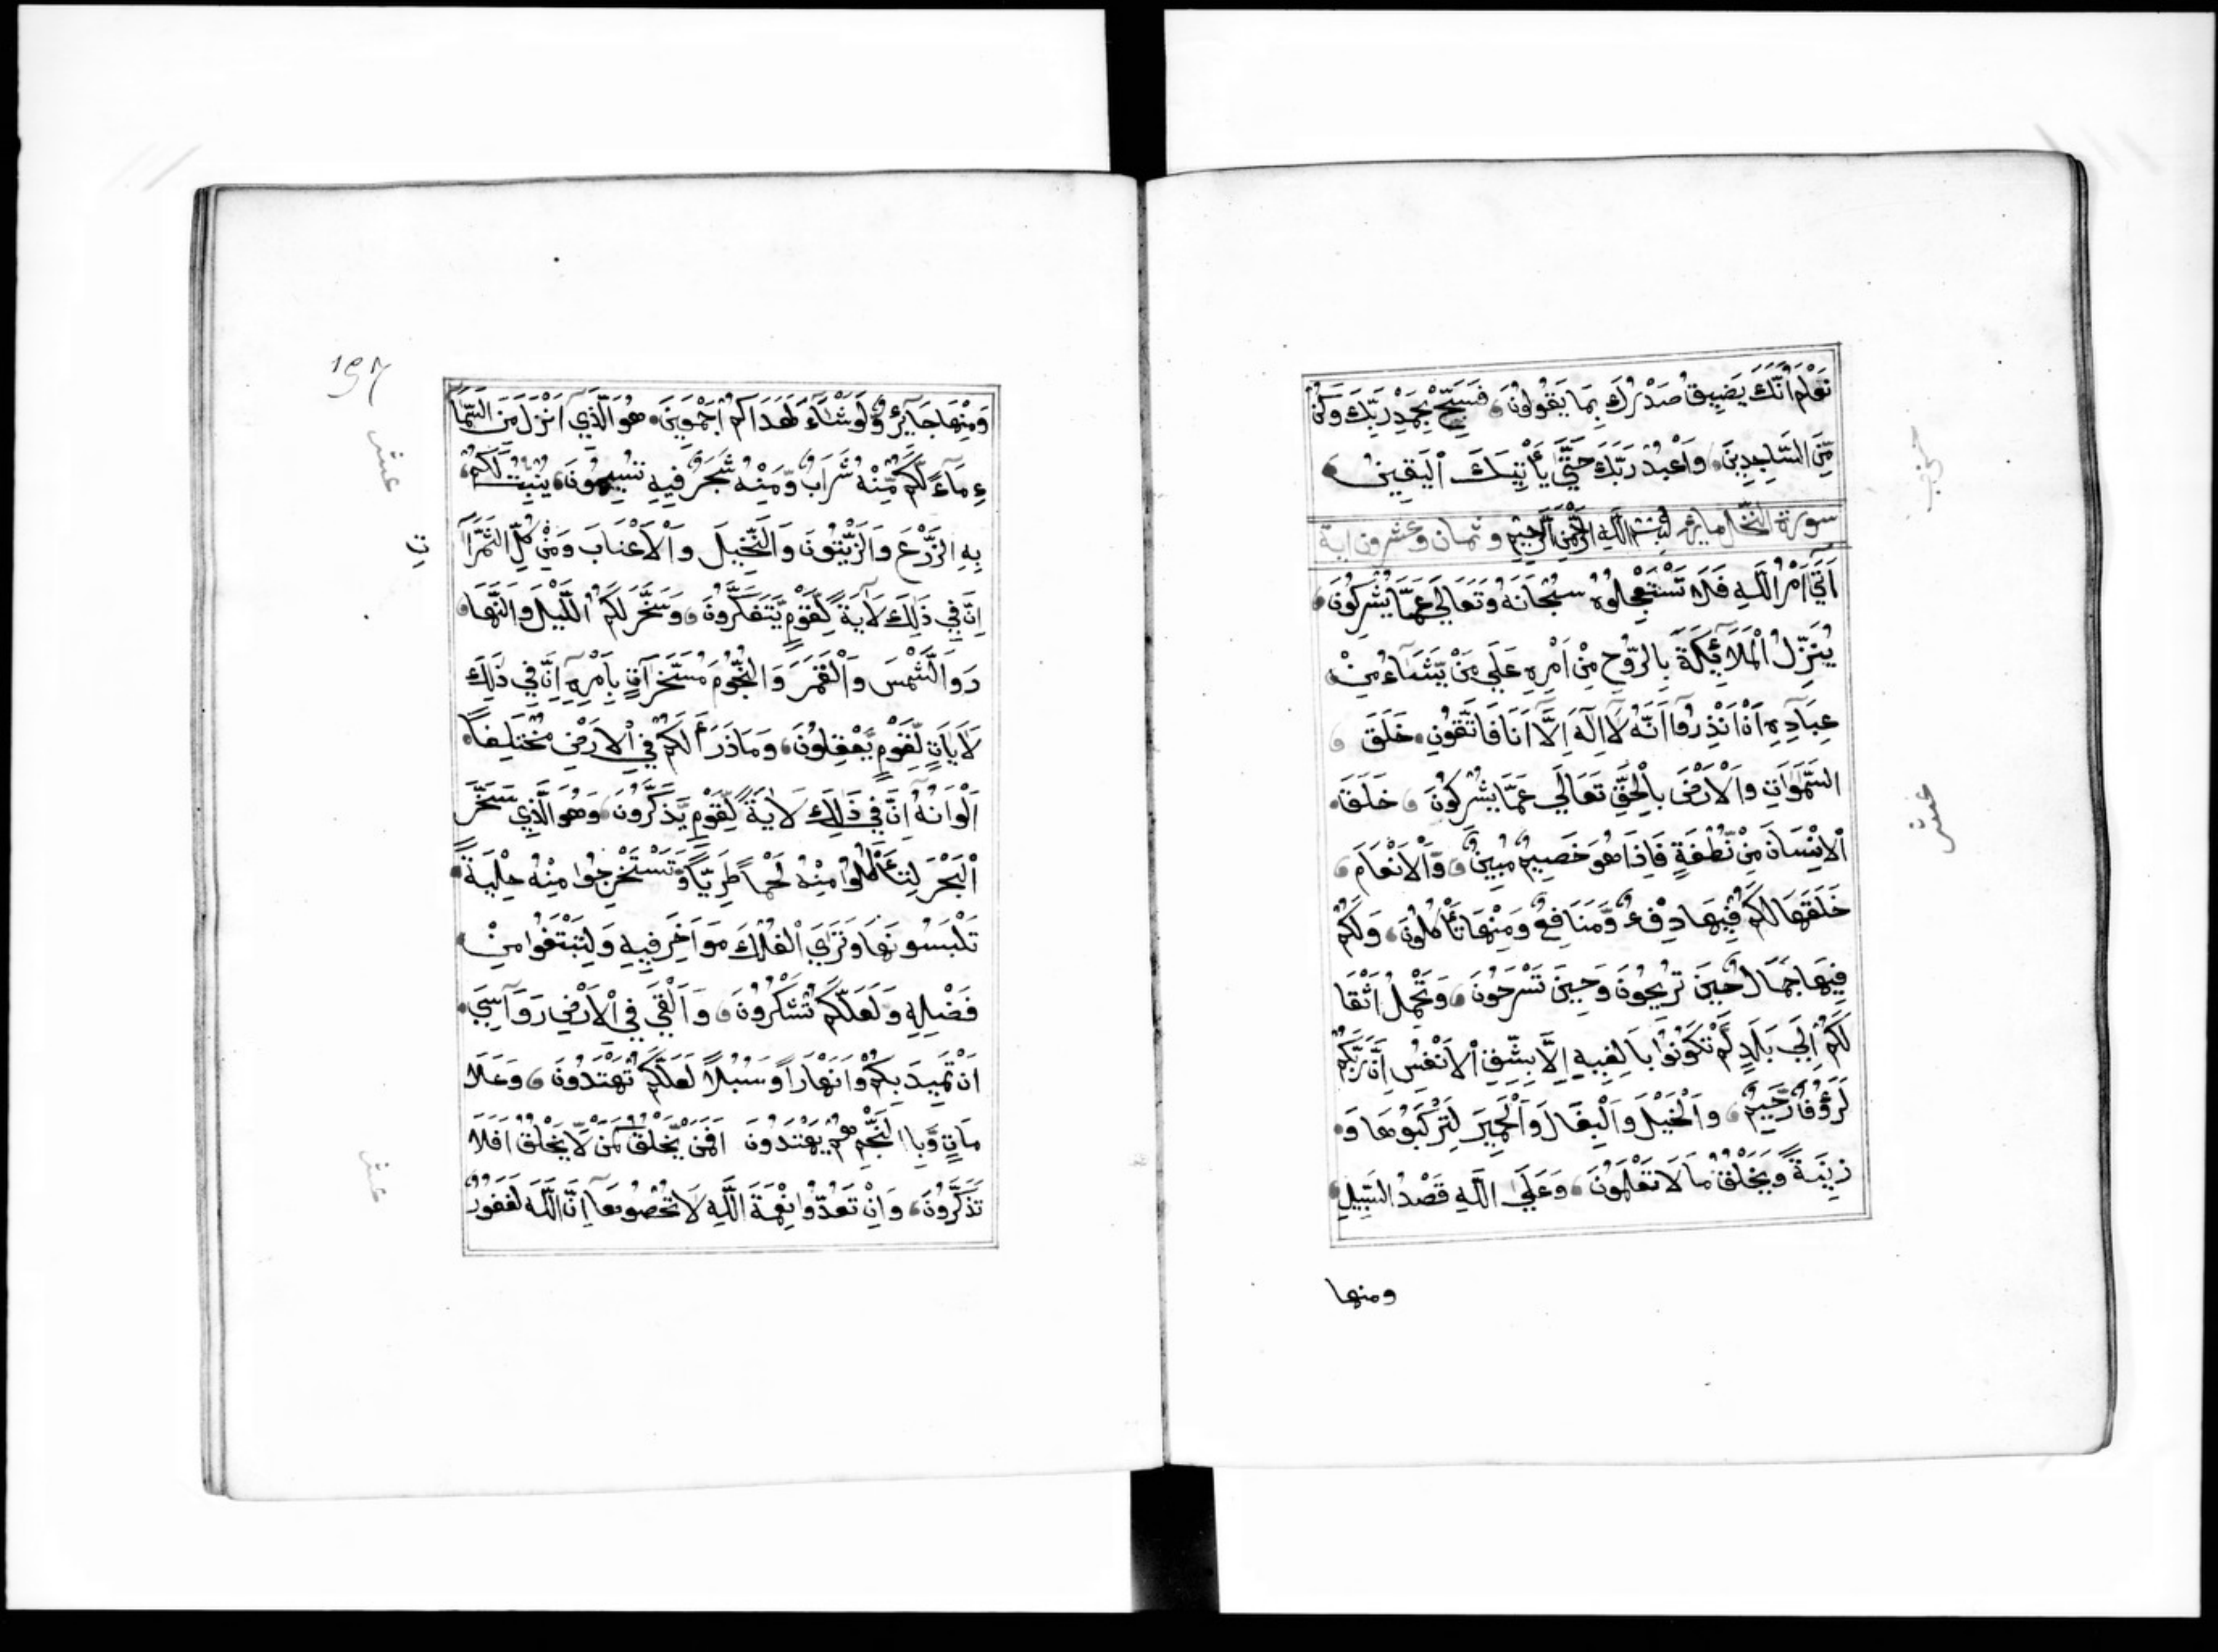 نَعْلَمُ أَنَّكَ يَضِيقُ صَدْرُكَ بِمَا يَقُولُونَ فَسَبِّحْ بِحَمْدِ رَبِّكَ وَكُنْ
مِّنَ السَّاجِدِينَ وَاعْبُدْ رَبَّكَ حَتَّى يَأْتِيَكَ الْيَقِينُ
سورة النحل ماية بِسْمِ اللَّهِ الرَّحْمَنِ الرَّحِيمِ وثمان وعشرون اية
أَتَى أَمْرُ اللَّهِ فَلَا تَسْتَعْجِلُوهُ سُبْحَانَهُ وَتَعَالَى عَمَّا يُشْرِكُونَ
يُنَزِّلُ الْمَلَائِكَةَ بِالرُّوحِ مِنْ أَمْرِهِ عَلَى مَنْ يَّشَاءُ مِنْ
عِبَادِهِ أَنْ أَنْذِرُوا أَنَّهُ لَا إِلَهَ إِلَّا أَنَا فَاتَّقُونِ خَلَقَ
السَّمَوَاتِ وَالْأَرْضَ بِالْحَقِّ تَعَالَى عَمَّا يُشْرِكُونَ خَلَقَ
الْإِنْسَانَ مِنْ نُّطْفَةٍ فَإِذَا هُوَ خَصِيمٌ مُّبِينٌ وَالْأَنْعَامَ
خَلَقَهَا لَكُمْ فِيهَا دِفْءٌ وَّمَنَافِعُ وَمِنْهَا تَأْكُلُونَ وَلَكُمْ
فِيهَا جَمَالٌ حِينَ تُرِيحُونَ وَحِينَ تَسْرَحُونَ وَتَحْمِلُ أَثْقَا
لَكُمْ إِلَى بَلَدٍ لَّمْ تَكُونُوا بَالِغِيهِ إِلَّا بِشِقِّ الْأَنْفُسِ إِنَّ رَبَّكُمْ
لَرَؤُوفٌ رَّحِيمٌ وَالْخَيْلَ وَالْبِغَالَ وَالْحَمِيرَ لِتَرْكَبُوهَا وَ
زِينَةً وَّيَخْلُقُ مَا لَا تَعْلَمُونَ وَعَلَى اللَّهِ قَصْدُ السَّبِيلِ
ومنها
حزب
عشر
وَمِنْهَا جَائِرٌ وَّلَوْ شَاءَ لَهَدَاكُمْ أَجْمَعِينَ هُوَ الَّذِي أَنْزَلَ مِنَ السَّمَا
ءِ مَاءً لَّكُمْ مِّنْهُ شَرَابٌ وَّمِنْهُ شَجَرٌ فِيهِ تُسِيمُونَ يُنْبِتُ لَكُمْ
بِهِ الزَّرْعَ وَالزَّيْتُونَ وَالنَّخِيلَ وَالْأَعْنَابَ وَمِنْ كُلِّ الثَّمَرَا
تِ
إِنَّ فِي ذَلِكَ لَآيَةً لِّقَوْمٍ يَّتَفَكَّرُونَ وَسَخَّرَ لَكُمُ اللَّيْلَ وَالنَّهَا
رَ وَالشَّمْسَ وَالْقَمَرَ وَالنُّجُومَ مُسَخَّرَاتٍ بِأَمْرِهِ إِنَّ فِي ذَلِكَ
لَآيَاتٍ لِّقَوْمٍ يَّعْقِلُونَ وَمَا ذَرَأَ لَكُمْ فِي الْأَرْضِ مُخْتَلِفًا
أَلْوَانُهُ إِنَّ فِي ذَلِكَ لَآيَةً لِّقَوْمٍ يَّذَّكَّرُونَ وَهُوَ الَّذِي سَخَّرَ
الْبَحْرَ لِتَأْكُلُوا مِنْهُ لَحْمًا طَرِيًّا وَّتَسْتَخْرِجُوا مِنْهُ حِلْيَةً
تَلْبَسُونَهَا وَتَرَى الْفُلْكَ مَوَاخِرَ فِيهِ وَلِتَبْتَغُوا مِنْ
فَضْلِهِ وَلَعَلَّكُمْ تَشْكُرُونَ وَأَلْقَى فِي الْأَرْضِ رَوَاسِيَ
أَنْ تَمِيدَ بِكُمْ وَأَنْهَارًا وَسُبُلًا لَعَلَّكُمْ تَهْتَدُونَ وَعَلَا
مَاتٍ وَّبِالنَّجْمِ هُمْ يَهْتَدُونَ أَفَمَنْ يَّخْلُقُ كَمَنْ لَّا يَخْلُقُ أَفَلَا
تَذَكَّرُونَ وَإِنْ تَعُدُّوا نِعْمَةَ اللَّهِ لَا تُحْصُوهَا إِنَّ اللَّهَ لَغَفُورٌ
197
عشر
عشر